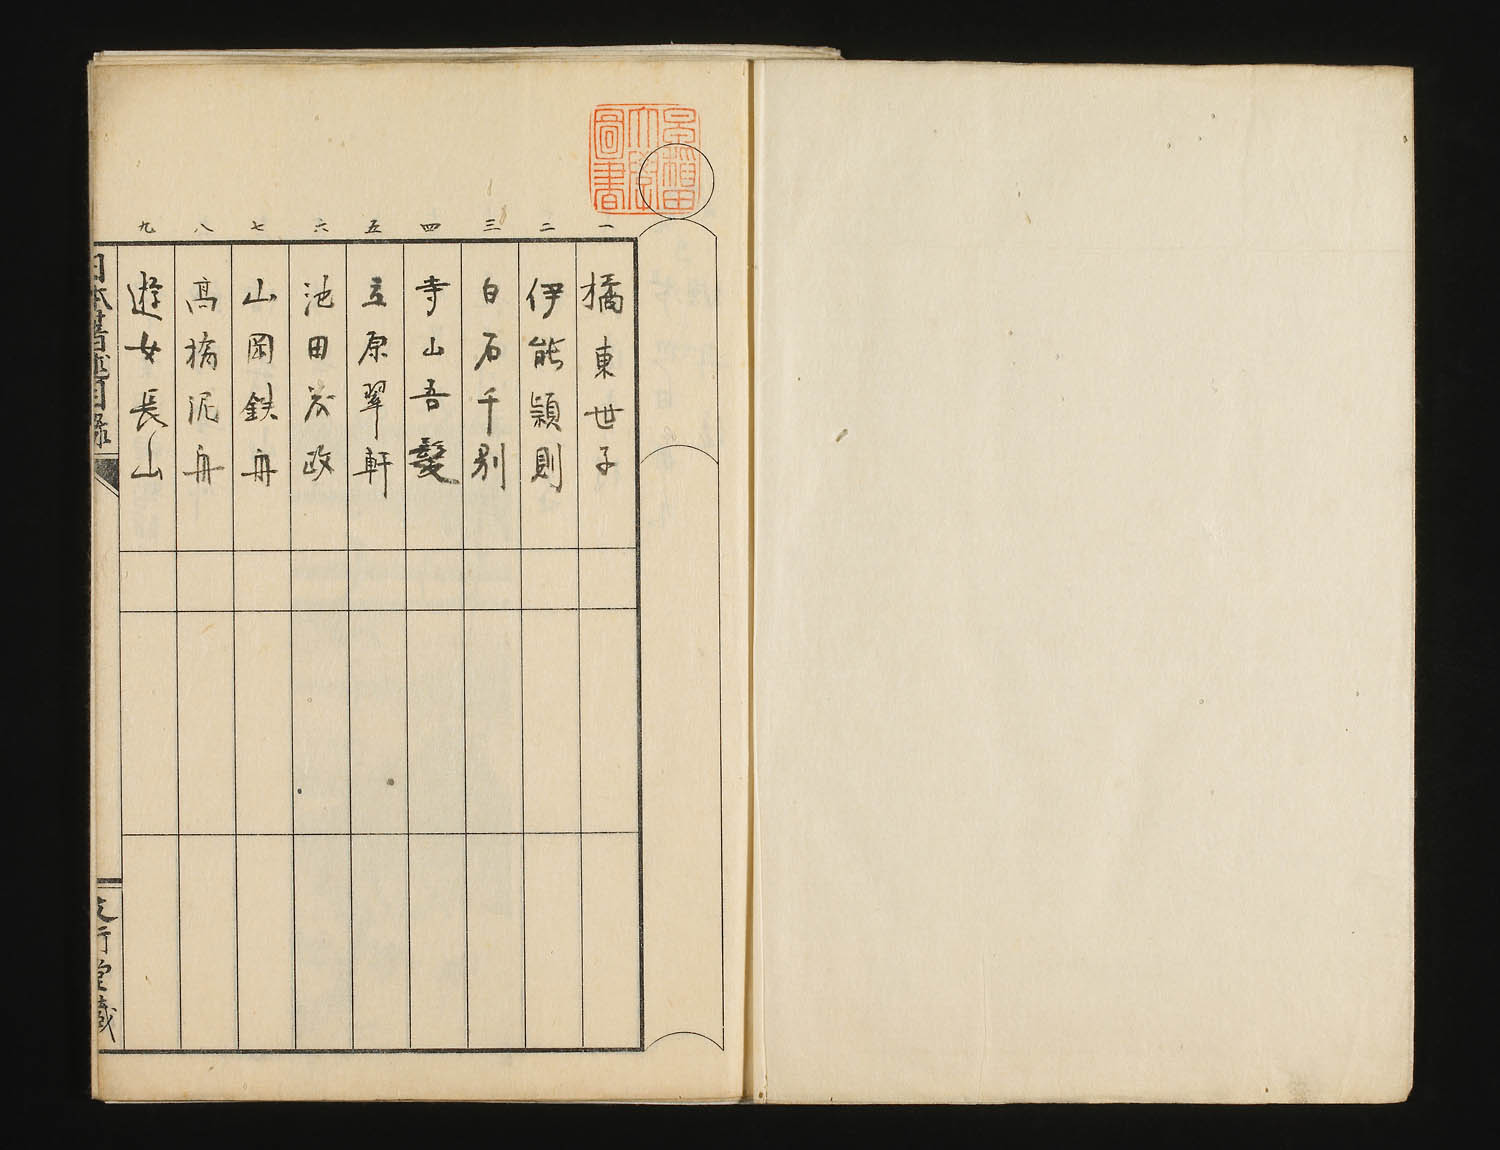 早稲田大学図書
一 橘東世子
二 伊能潁則
三 白石千別
四 寺山吾鬘
五 立原翠軒
六 池田茂政
七 山岡鉄舟
八 高橋泥舟
九 遊女長山
日本書蹟目録
行堂蔵